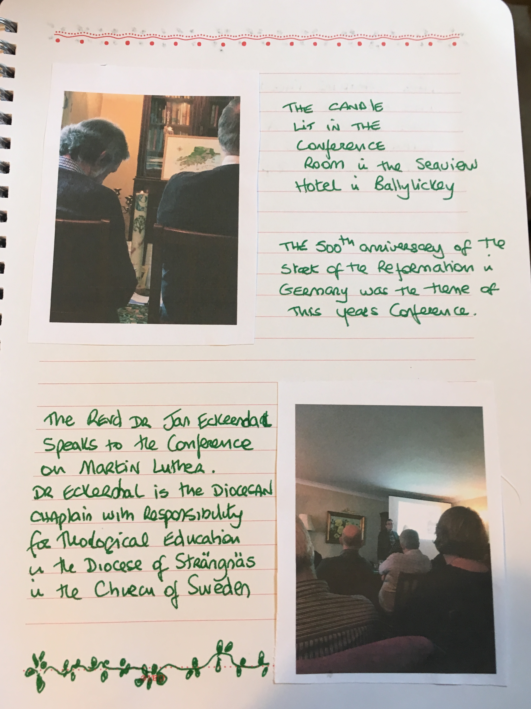 THE CANDLE
LIT IN THE
Conference
Room in the Seaview
Hotel in Ballylickey
THE 500th anniversary of the
start of the Reformation in
GERMANY was the theme of
this years Conference.
The Revd DR Jan Eckerdal
Speaks to the Conference
on Martin Luther.
DR Eckerdal is the DIOCESAN
CHAPLAIN with Responsibility
for Theological Education
in the Diocese of Strängnäs
in the Church of Sweden